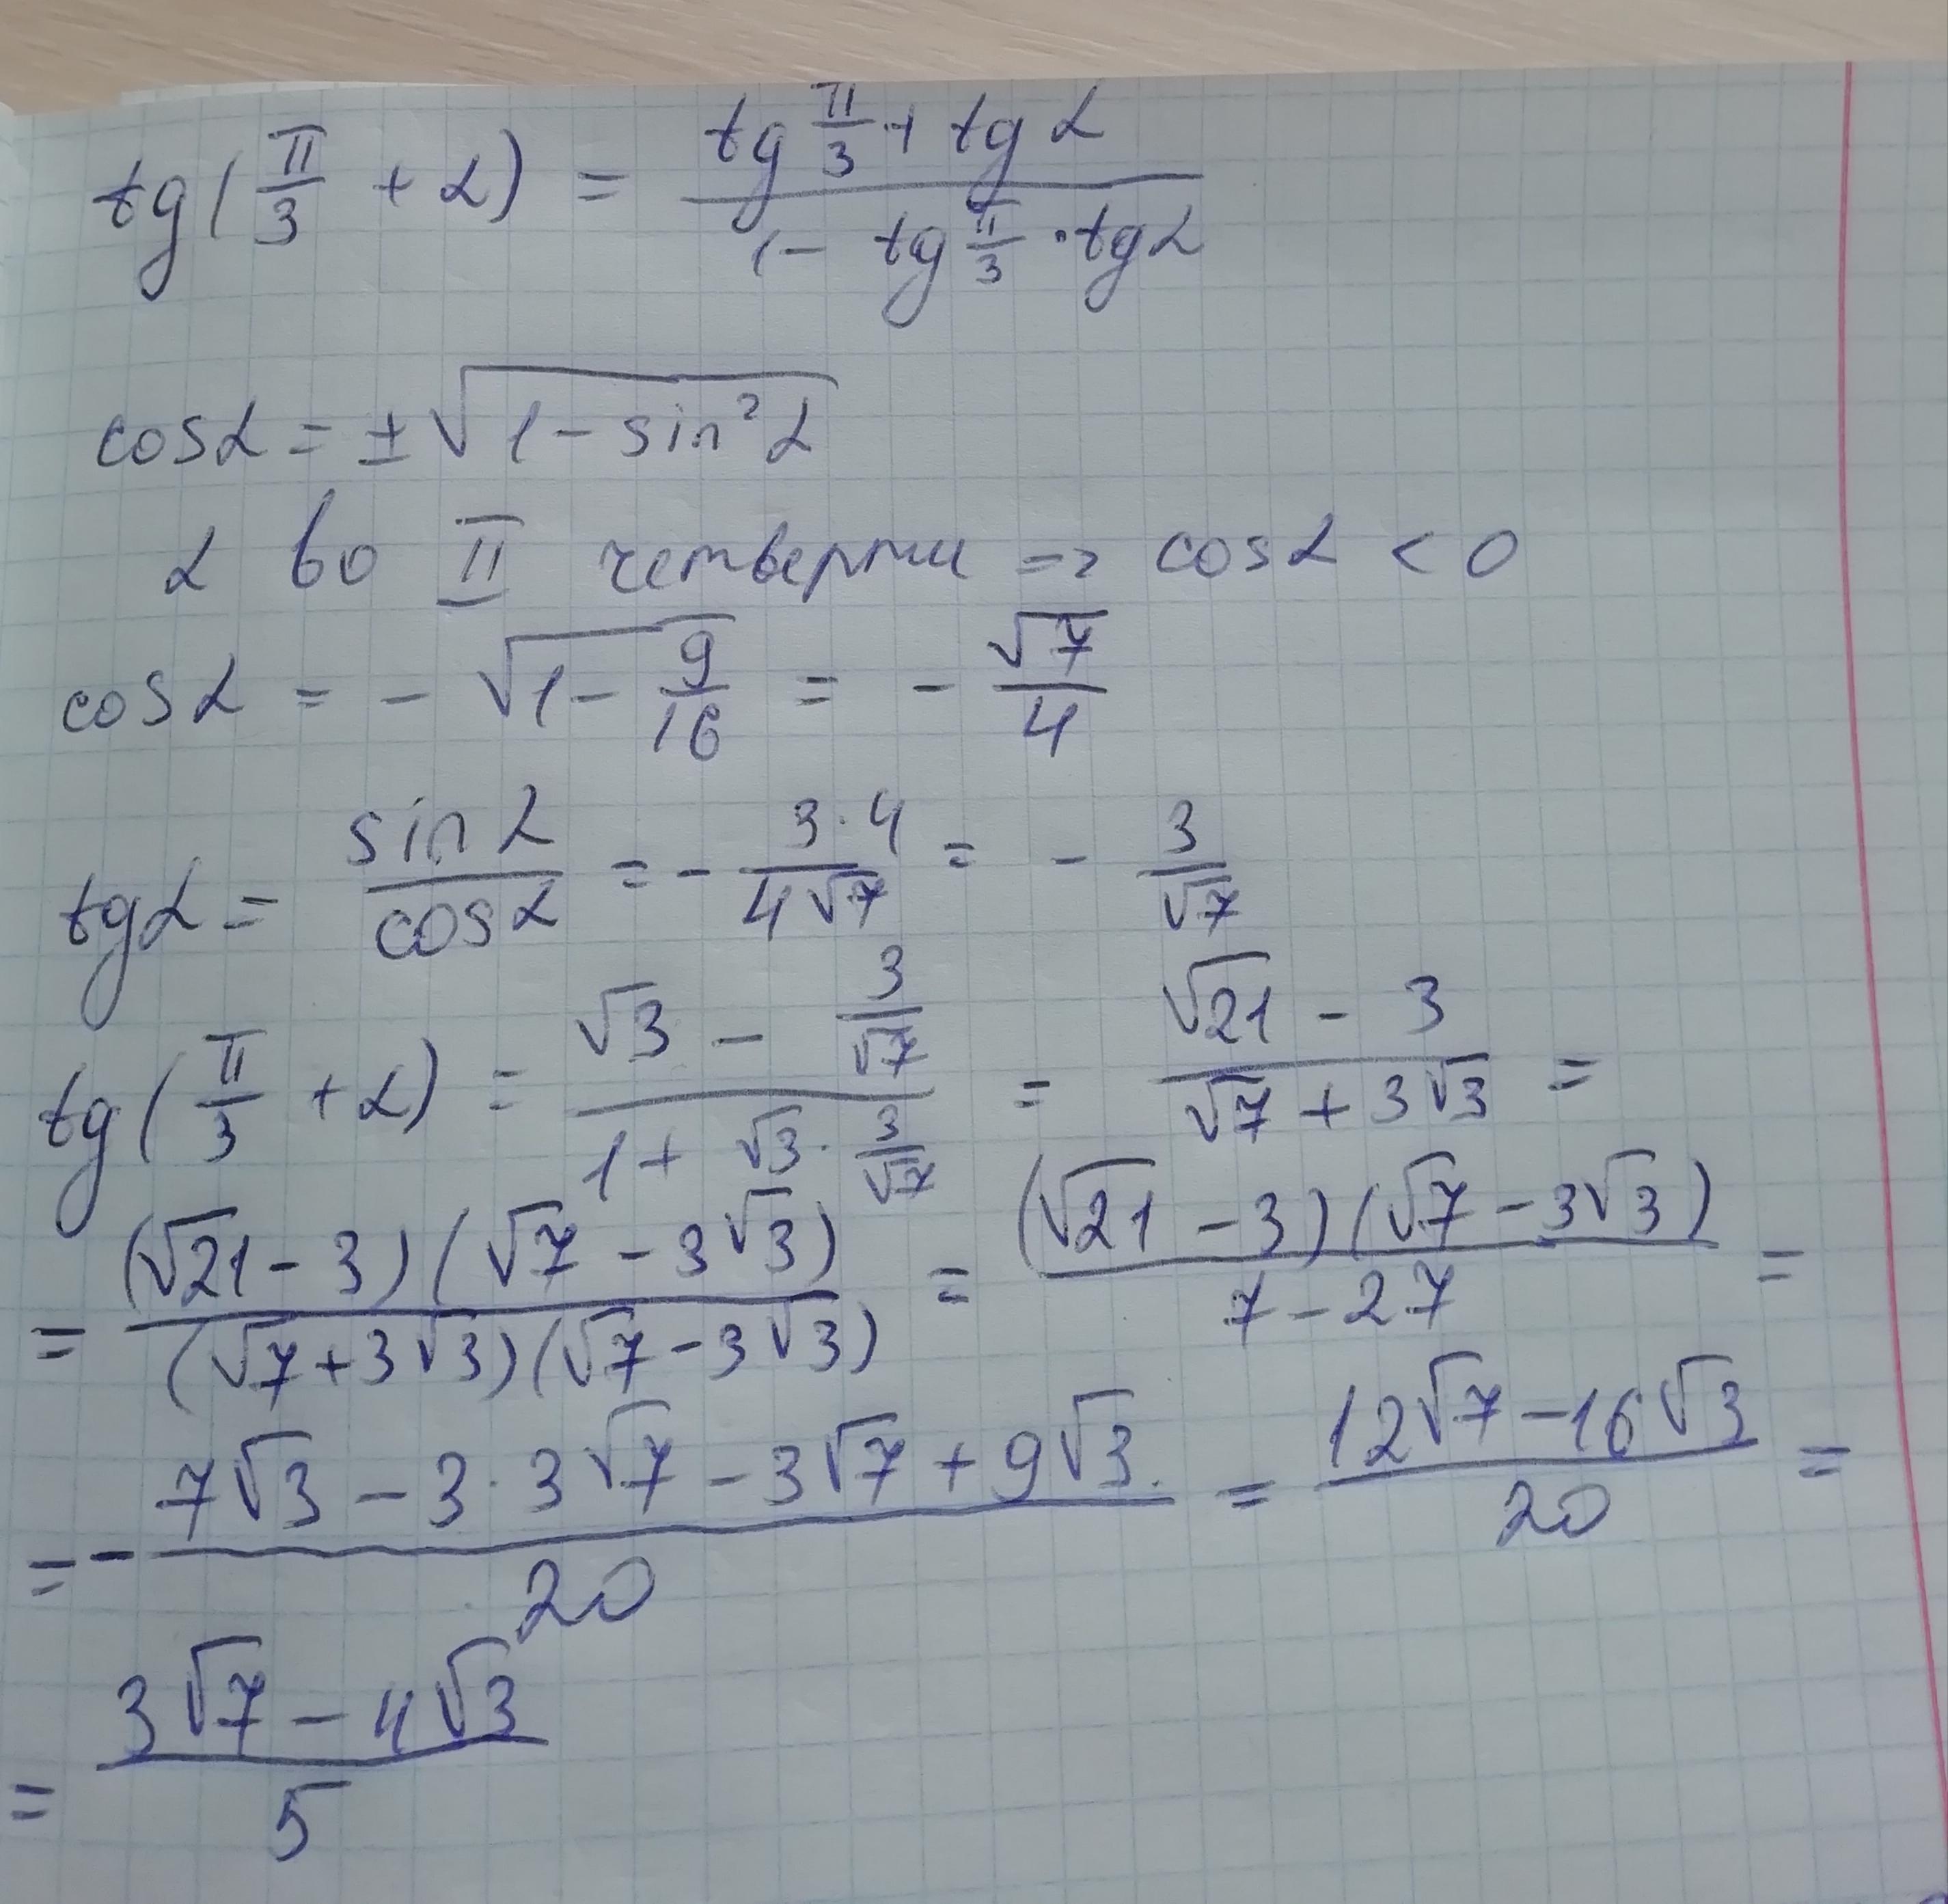 tg(π/3 + α) = (tg π/3 + tg α)/(1 - tg π/3 · tg α)
cos α = ±√(1 - sin²α)
α во II четверти => cos α < 0
cos α = - √(1 - 9/16) = - √7/4
tg α = sin α/cos α = - (3·4)/(4√7) = - 3/√7
tg(π/3 + α) = (√3 - 3/√7)/(1 + √3 · 3/√7) = (√21 - 3)/(√7 + 3√3) =
= ((√21 - 3)(√7 - 3√3))/((√7 + 3√3)(√7 - 3√3)) = ((√21 - 3)(√7 - 3√3))/(7 - 27) =
= - (7√3 - 3·3√7 - 3√7 + 9√3)/20 = (12√7 - 16√3)/20 =
= (3√7 - 4√3)/5